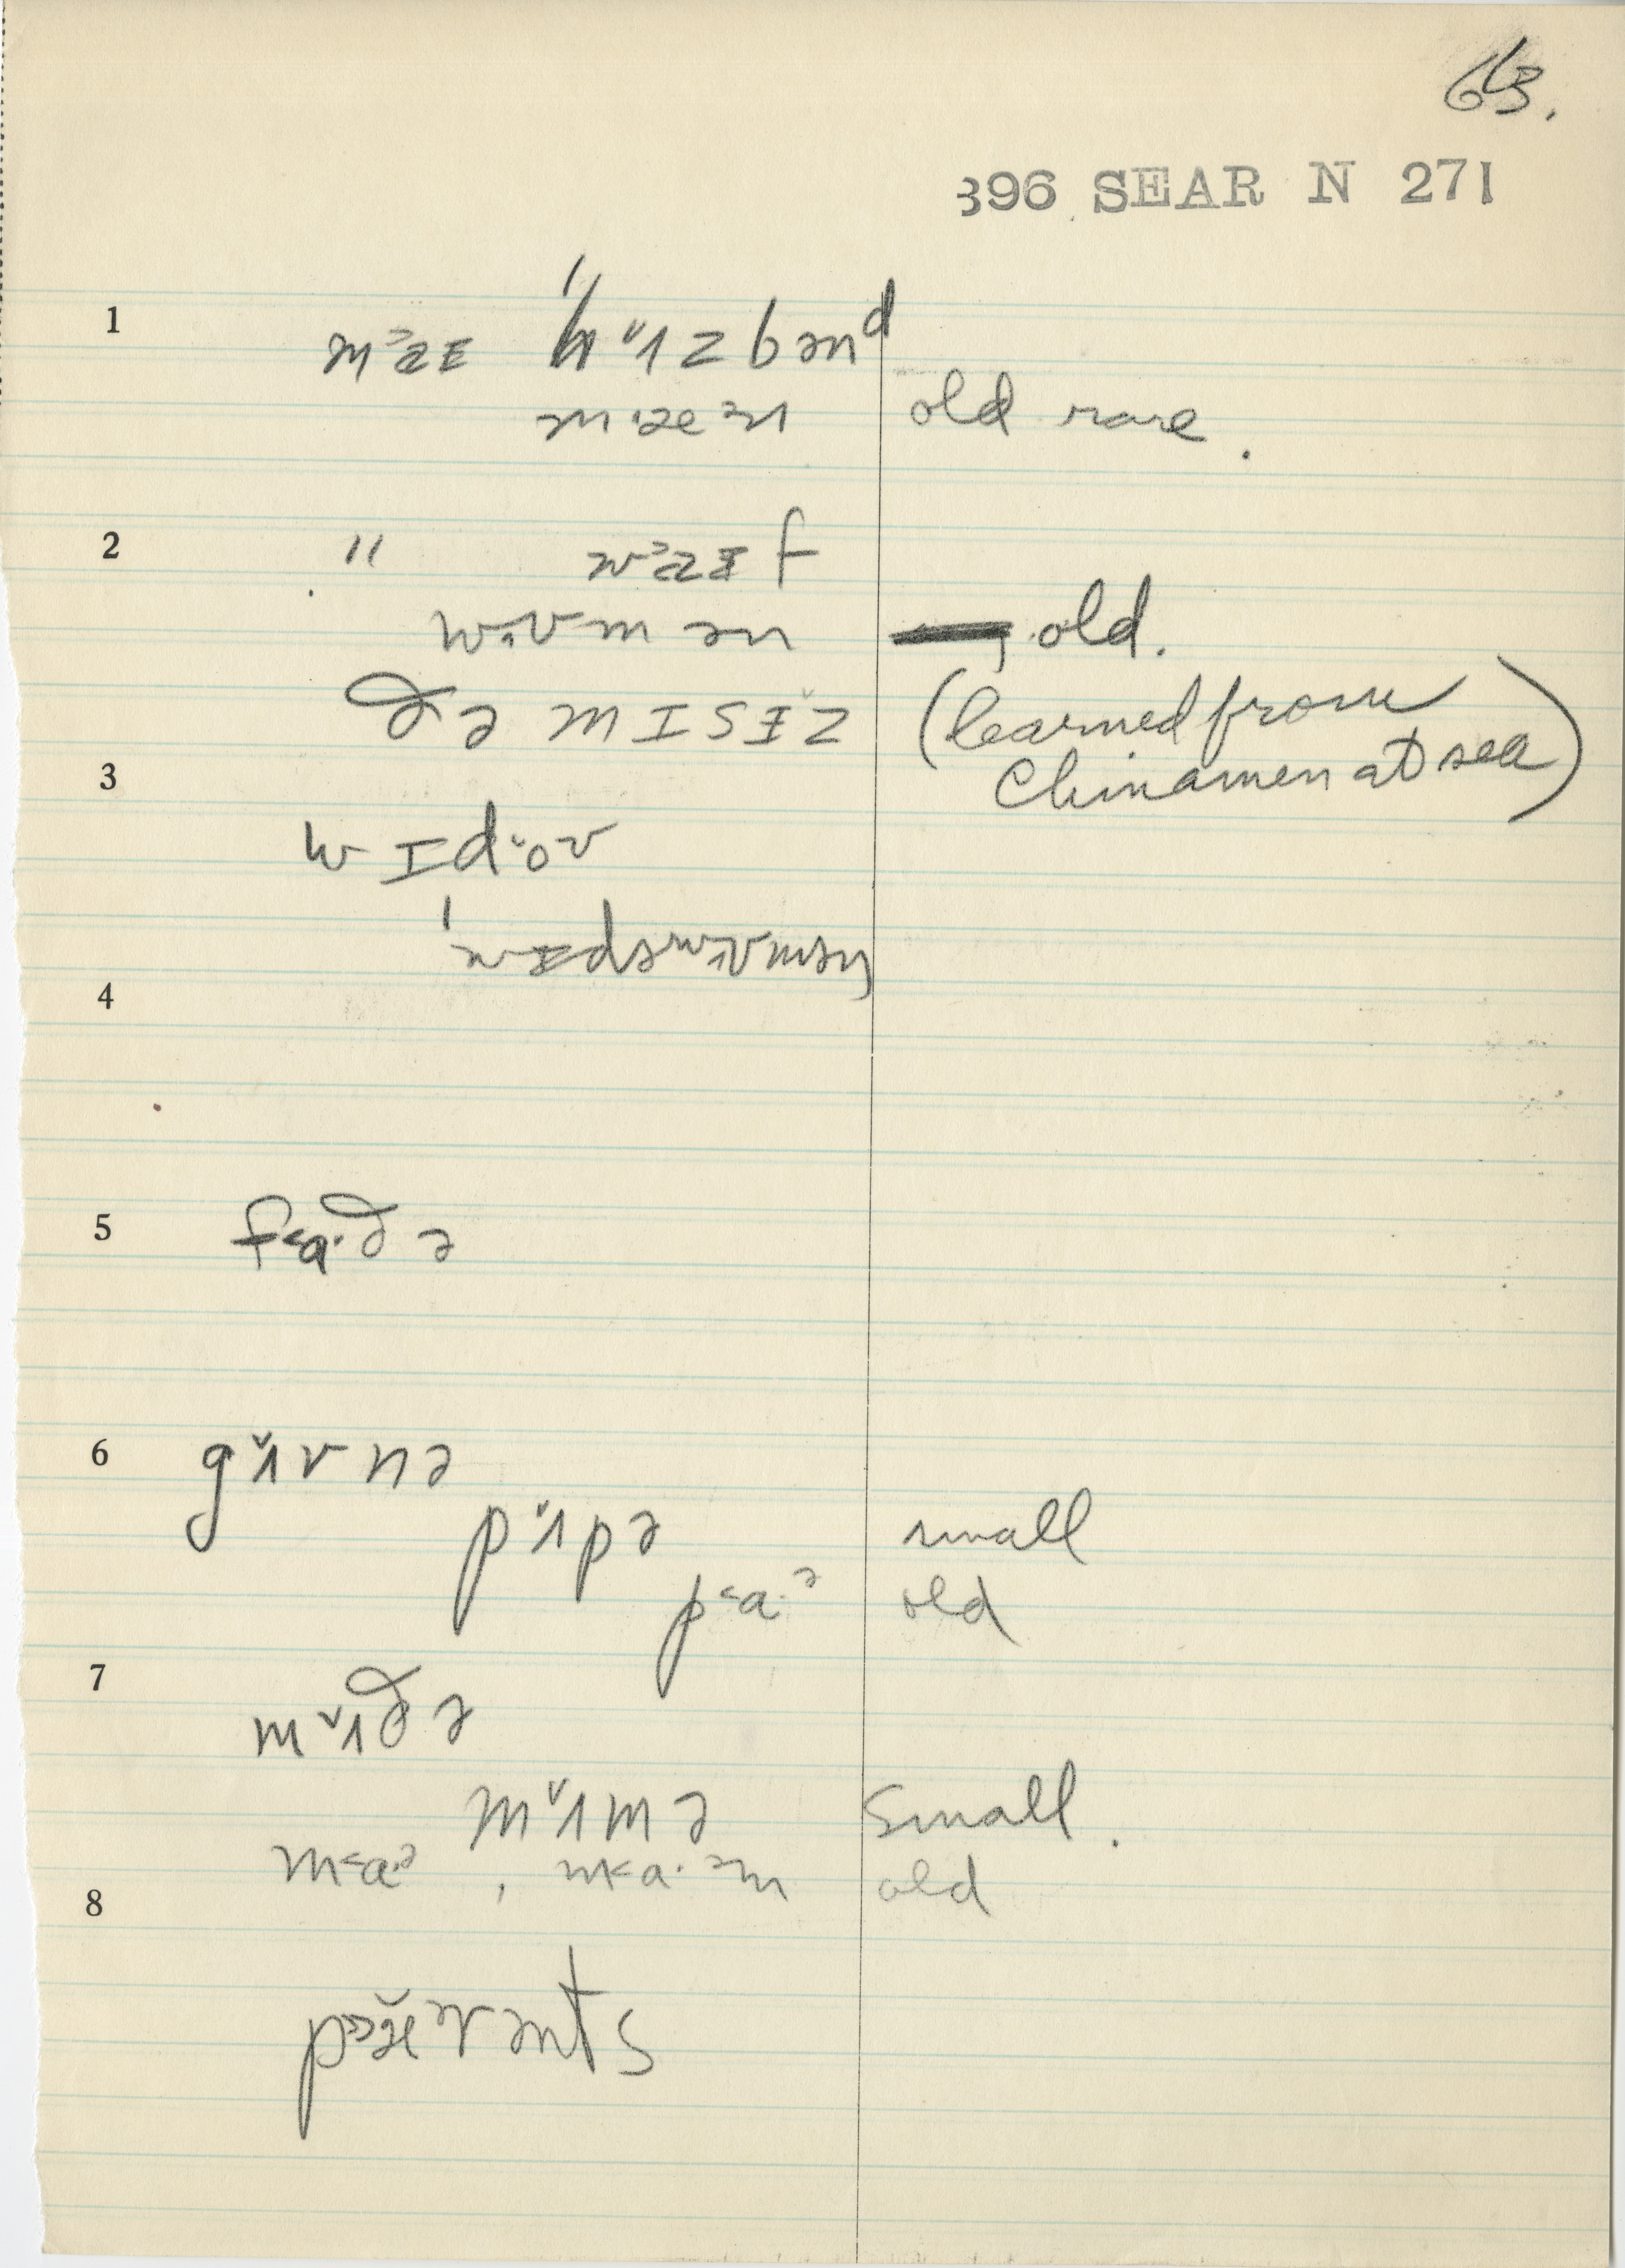 63.
396 SEAR N 271
1 maɪ hʌzbənᵈ
mæən old rare.
2 " waɪf
wʊmən old.
ðə mɪsɪz (learned from
3 Chinamen at sea)
wɪdoʊ
wɪdəwʊmən
4
5 fɑ·ðə
6 gʌvnə
pʌpə small
pɑ·ə old
7
mʌðə
mʌmə small.
mɑ·ə, mɑ·əm old
8
pærənts